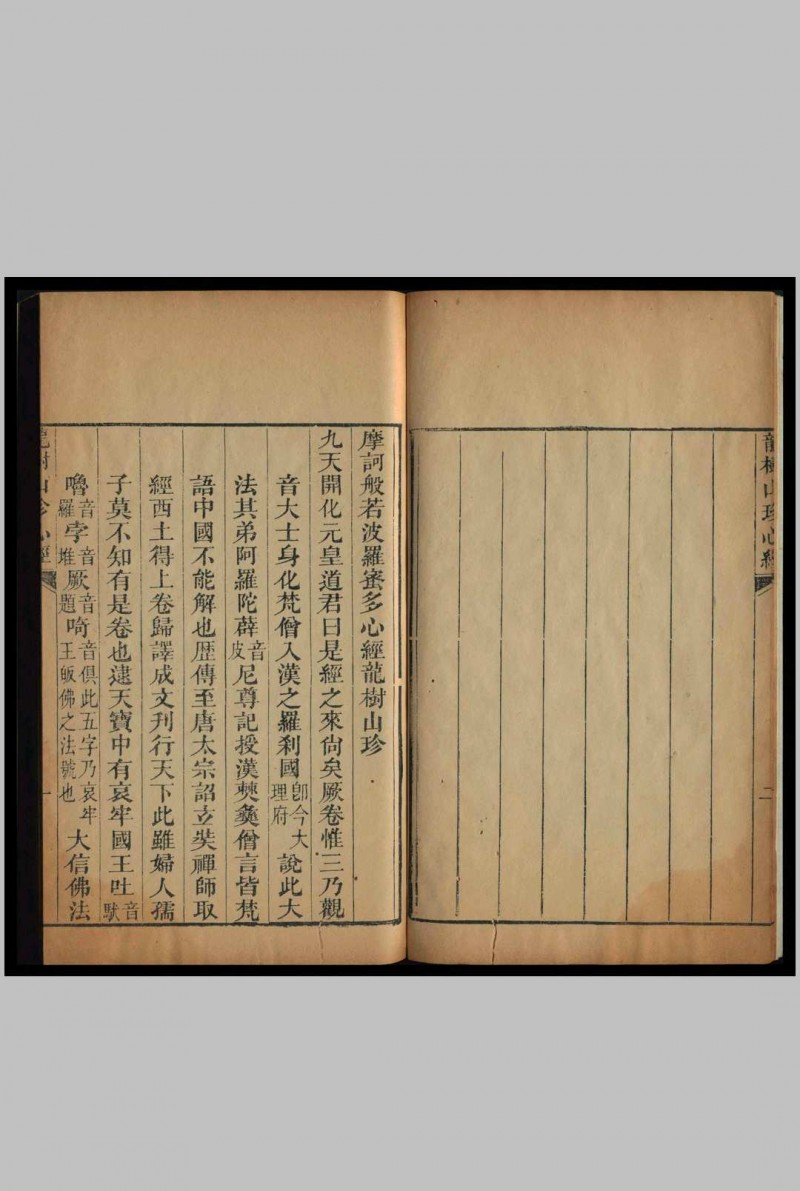 龍樹山珍心經
二
摩訶般若波羅蜜多心經龍樹山珍
九天開化元皇道君曰是經之來尙矣厥卷惟三乃觀
音大士身化梵僧入漢之羅刹國卽今大理府說此大
法其弟阿羅陀薜音皮尼尊記授漢僰彝僧言皆梵
語中國不能解也歷傳至唐太宗詔立奘禪師取
經西土得上卷歸譯成文刋行天下此雖婦人孺
子莫不知有是卷也逮天寶中有哀牢國王吐音馱
嚕音羅孛音堆厥音題啨音俱此五字乃哀牢王皈佛之法號也大信佛法
龍樹山珍心經
一